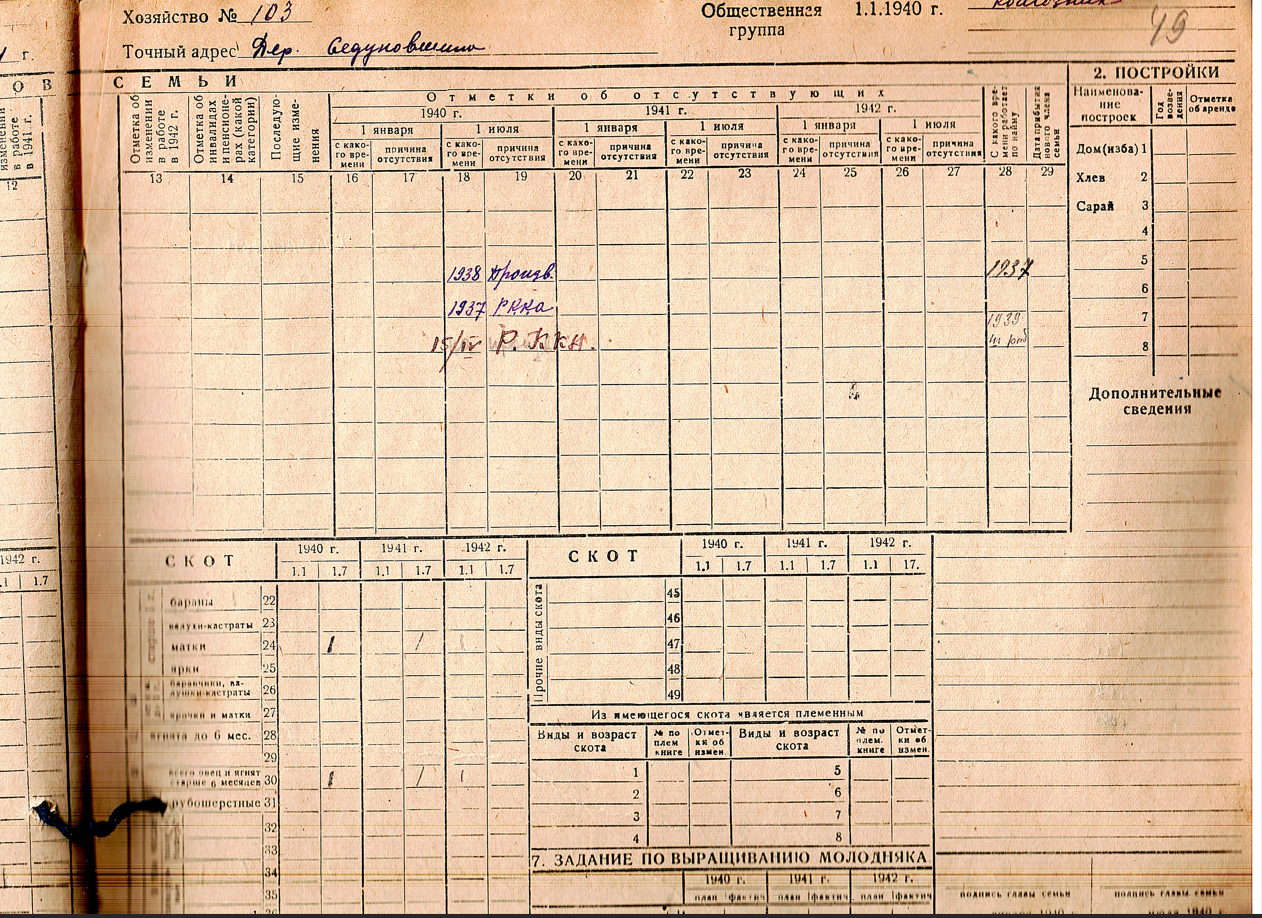 Хозяйство № 103
Общественная группа 1.1.1940 г.
49
Точный адрес Дер.
г.
О В
С Е М Ь И
2. ПОСТРОЙКИ
Отметки об отсутствующих
1940 г. 1941 г. 1942 г.
1 января 1 июля 1 января 1 июля 1 января 1 июля
изменении в работе в 1941 г.
Отметка об изменении в работе в 1942 г.
Отметка об инвалидах и пенсионерах (какой категории)
Последующие изменения
с како-го вре-мени причина отсутствия с како-го вре-мени причина отсутствия с како-го вре-мени причина отсутствия с како-го вре-мени причина отсутствия с како-го вре-мени причина отсутствия с како-го вре-мени причина отсутствия
С какого вре-мени работает по найму
Дата прибытия нового члена семьи
Наименова-ние построек
Год возве-дения
Отметка об аренде
12 13 14 15 16 17 18 19 20 21 22 23 24 25 26 27 28 29
Дом(изба) 1
Хлев 2
Сарай 3
4
5
6
7
8
1938 Произв. 1937
1937 РККА
1939
15/IV Р.К.К.А.
Дополнительные сведения
1942 г.
.1 1.7
СКОТ
1940 г. 1941 г. 1942 г.
1.1 1.7 1.1 1.7 1.1 1.7
бараны 22
валухи-кастраты 23
матки 24 1 1 1
ярки 25
баранчики, ва-лушки-кастраты 26
ярочки и матки 27
ягнята до 6 мес. 28
29
всего овец и ягнят старше 6 месяцев 30 1 1 1
грубошерстные 31
32
33
34
35
СКОТ
1940 г. 1941 г. 1942 г.
1.1 1.7 1.1 1.7 1.1 17.
Прочие виды скота
45
46
47
48
49
Из имеющегося скота является племенным
Виды и возраст скота № по плем книге Отмет-ки об измен. Виды и возраст скота № по плем. книге Отмет-ки об измен.
1 5
2 6
3 7
4 8
7. ЗАДАНИЕ ПО ВЫРАЩИВАНИЮ МОЛОДНЯКА
1940 г. 1941 г. 1942 г.
план фактич план фактич. план фактич
подпись главы семьи подпись главы семьи
января 1940 г. июля 1940 г.